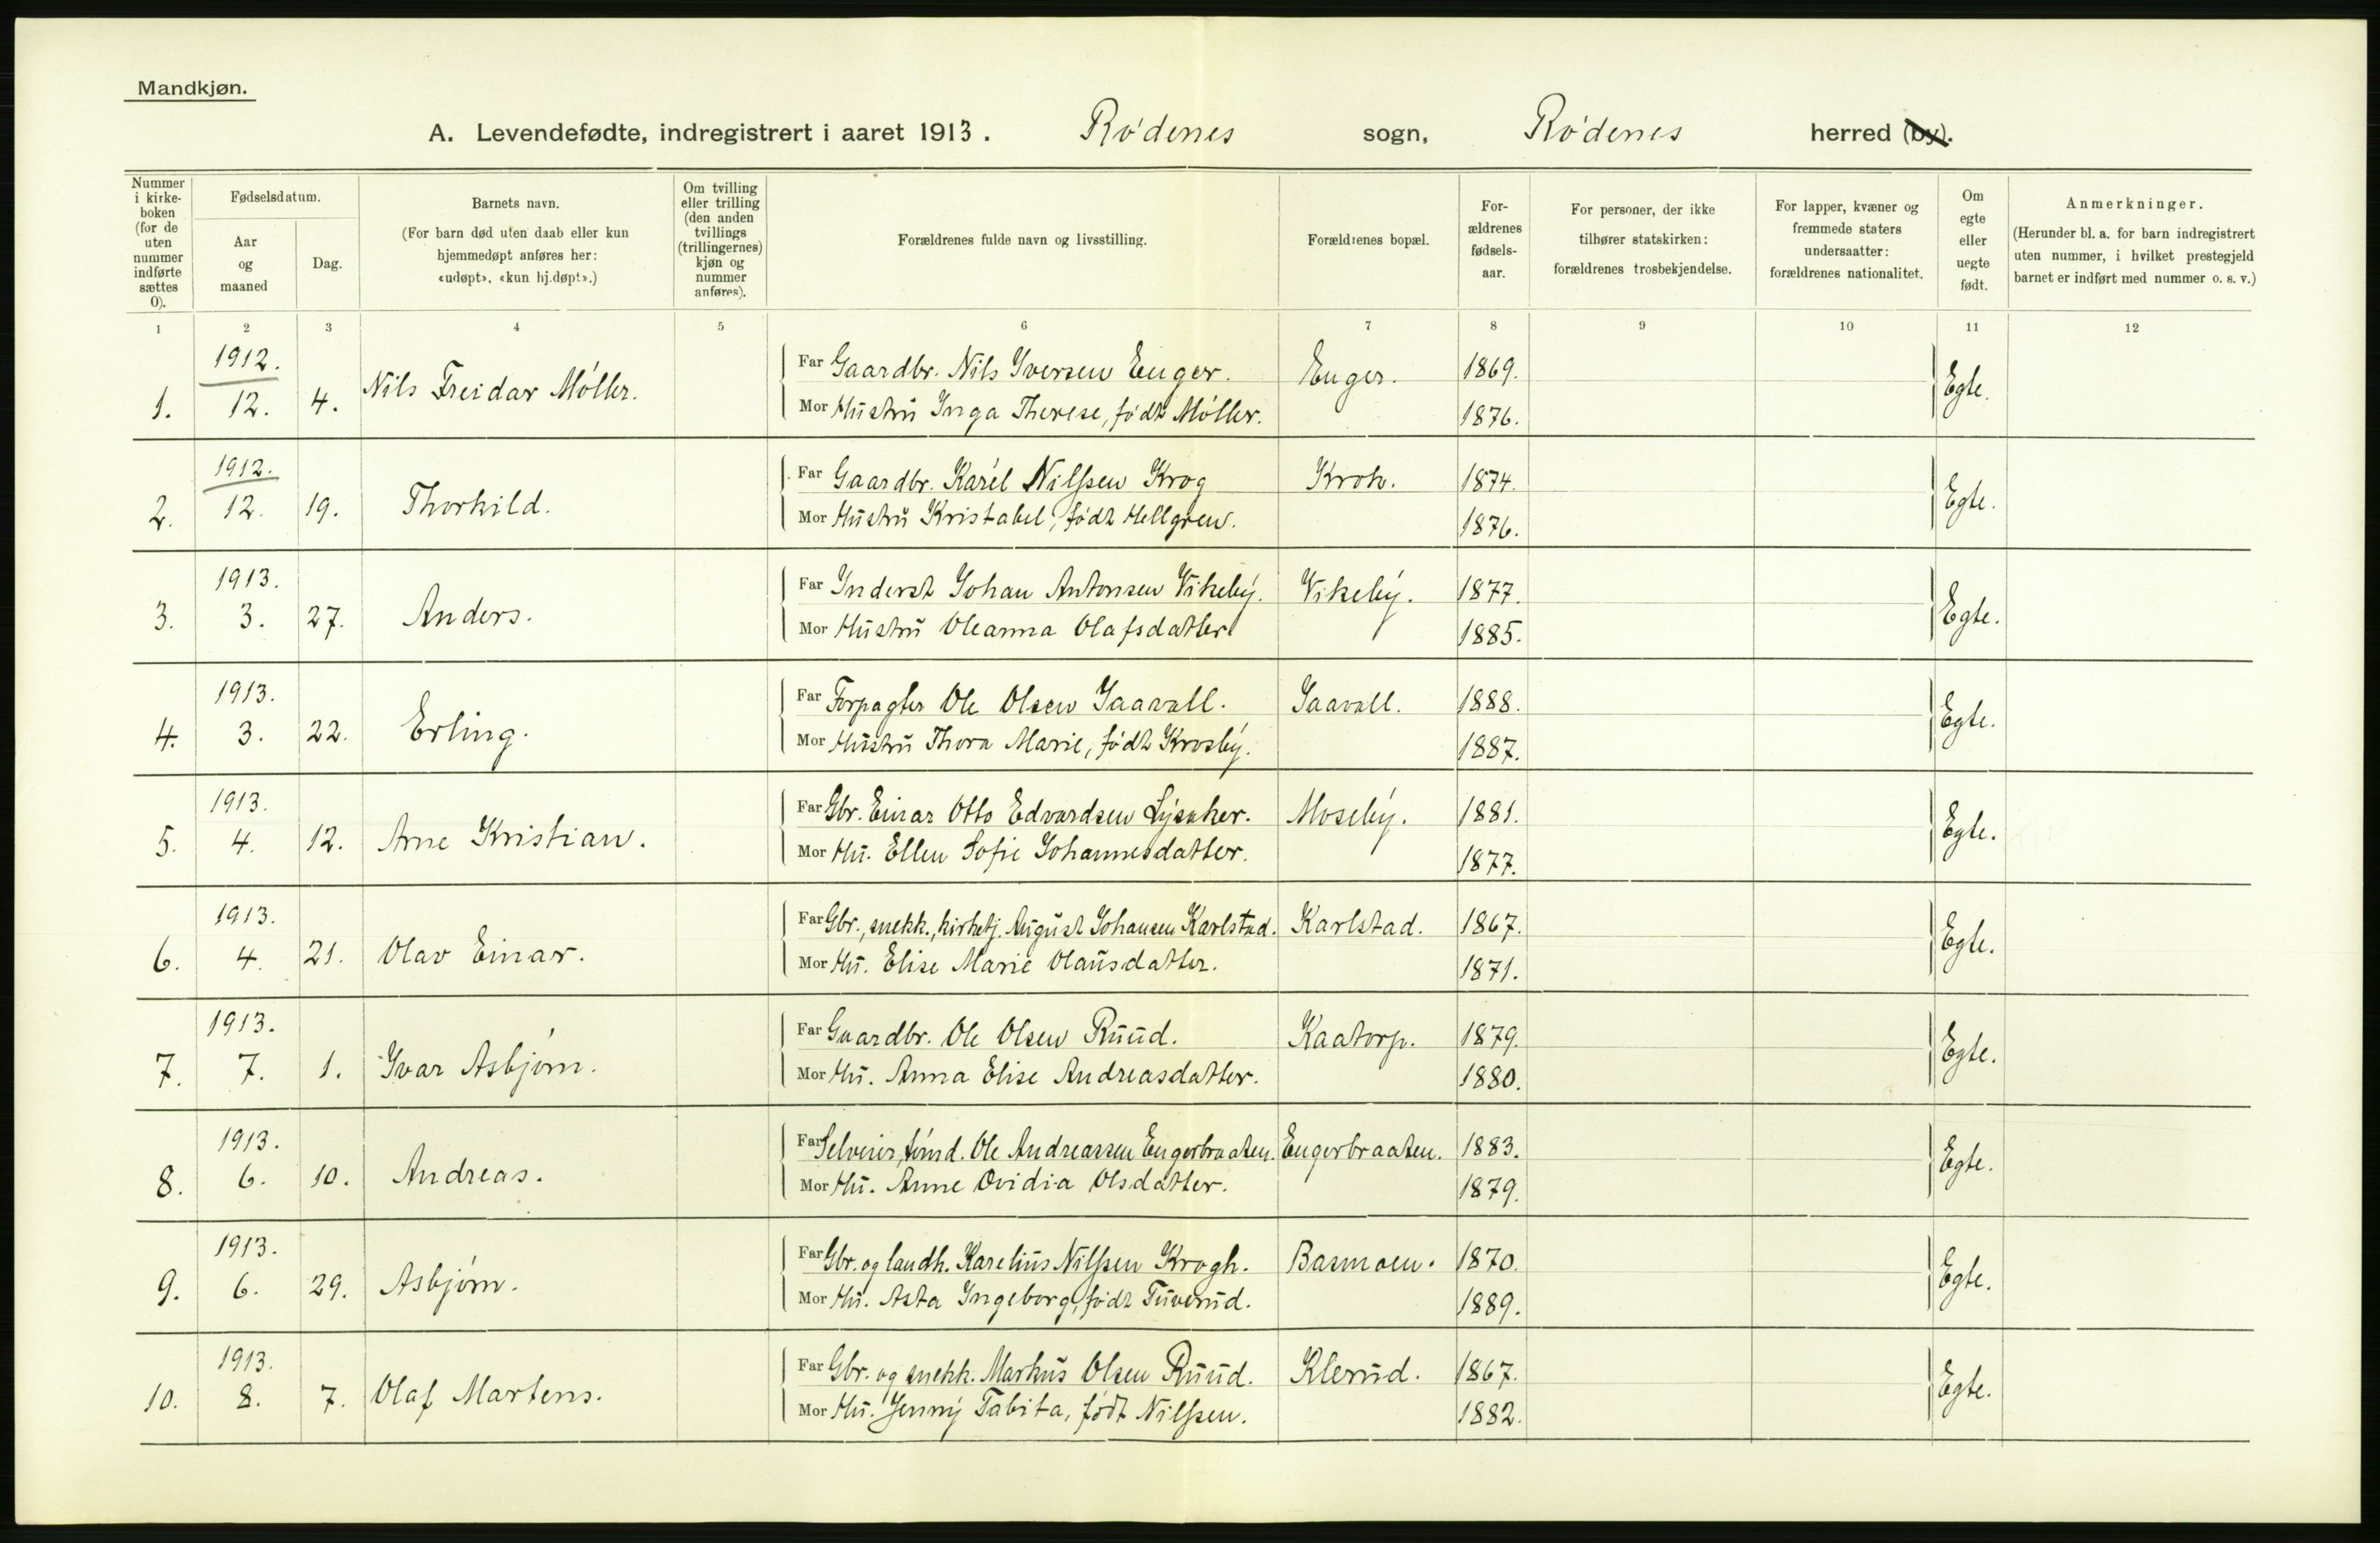 Mandkjøn.
A. Levendefødte, indregistrert i aaret 1913. Rødenes sogn, Rødenes herred (by).
Nummer i kirkeboken (for de uten nummer indførte sættes 0).
Fødselsdatum.
Aar og maaned
Dag.
Barnets navn.
(For barn død uten daab eller kun hjemmedøpt anføres her: «udøpt», «kun hj.døpt».)
Om tvilling eller trilling (den anden tvillings (trillingernes) kjøn og nummer anføres).
Forældrenes fulde navn og livsstilling.
Forældrenes bopæl.
Forældrenes fødselsaar.
For personer, der ikke tilhører statskirken: forældrenes trosbekjendelse.
For lapper, kvæner og fremmede staters undersaatter: forældrenes nationalitet.
Om egte eller uegte født.
Anmerkninger.
(Herunder bl. a. for barn indregistrert uten nummer, i hvilket prestegjeld barnet er indført med nummer o. s. v.)
1 2 3 4 5 6 7 8 9 10 11 12
1912.
1. 12. 4. Nils Freidar Møller. Far Gaardbr. Nils Iversen Enger. Enger. 1869. Egte.
Mor Hustru Inga Therese, født Møller. 1876.
1912.
2. 12. 19. Thorhild. Far Gaardbr. Karél Nilssen Krog Krok. 1874. Egte.
Mor Hustru Kristabel, født Hellgren. 1876.
1913.
3. 3. 27. Anders. Far Inderst Johan Antonsen Vikeby. Vikeby. 1877. Egte.
Mor Hustru Oleanna Olafsdatter 1885.
1913.
4. 3. 22. Erling. Far Forpagter Ole Olsen Jaavall. Jaavall. 1888. Egte.
Mor Hustru Thora Marie, født Krosby. 1887.
1913.
5. 4. 12. Arne Kristian. Far Gbr. Einar Otto Edvardsen Lysaker. Moseby. 1881. Egte.
Mor Hu. Ellen Sofie Johannesdatter. 1877.
1913.
6. 4. 21. Olav Einar. Far Gbr., snekk., kirketj. August Johansen Karlstad. Karlstad. 1867. Egte.
Mor Hu. Elise Marie Olausdatter. 1871.
1913.
7. 7. 1. Ivar Asbjørn. Far Gaardbr. Ole Olsen Ruud. Kaatorp. 1879. Egte.
Mor Hu. Anna Elise Andreasdatter. 1880.
1913.
8. 6. 10. Andreas. Far Selveier, tømd. Ole Andreassen Engerbraaten. Engerbraaten. 1883. Egte.
Mor Hu. Anne Ovidia Olsdatter. 1879.
1913.
9. 6. 29. Asbjørn. Far Gbr. og landh. Karelius Nilssen Krogh. Basmoen. 1870. Egte.
Mor Hu. Asta Ingeborg, født Tuverud. 1889.
1913.
10. 8. 7. Olaf Martens. Far Gbr. og snekk. Markus Olsen Ruud. Klerud. 1867. Egte.
Mor Hu. Jenny Tabita, født Nilssen. 1882.